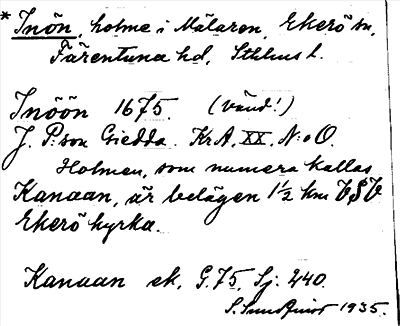 * Inön, holme i Mälaren, Ekerö sn,
Färentuna hd, Sthlms l.
Inöön 1675. (vänd!)
J. P:son Giedda KrA, XX, N:o 0.
Holmen, som numera kallas
Kanaan, är belägen 1½ km VSV
Ekerö kyrka.
Kanaan ek. G.75, Sj: 240.
S. Sundquist 1935.